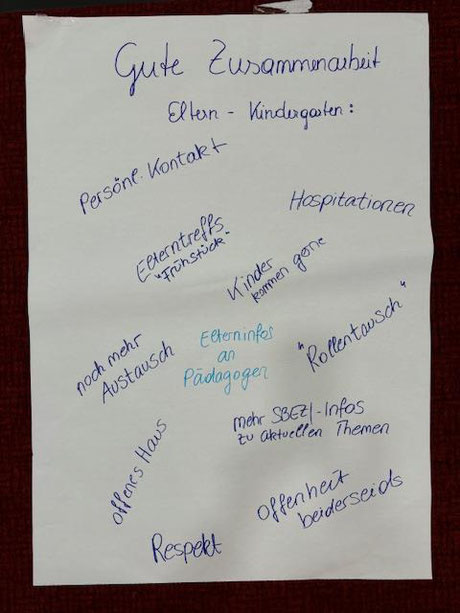 Gute Zusammenarbeit
Eltern - Kindergarten:
Persönl. Kontakt
Hospitationen
Elterntreffs
"Frühstück"
Kinder
kommen gerne
noch mehr
Austausch
Elterninfos
an
Pädagogen
"Rollentausch"
mehr SBEZ-Infos
zu aktuellen Themen
offenes Haus
Offenheit
beiderseids
Respekt